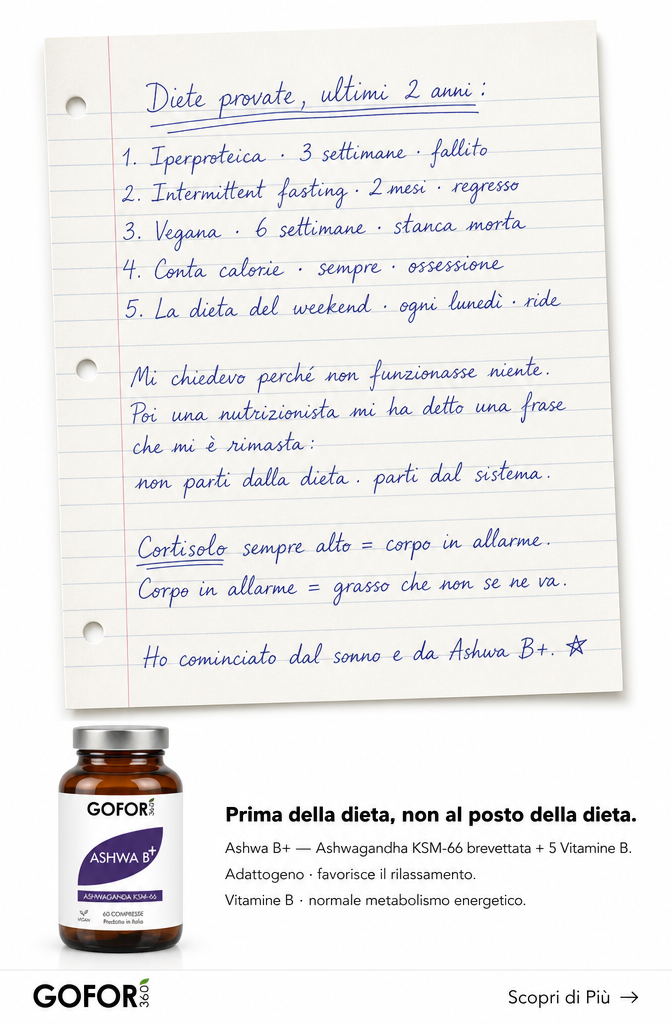 Diete provate, ultimi 2 anni:
1. Iperproteica · 3 settimane · fallito
2. Intermittent fasting · 2 mesi · regresso
3. Vegana · 6 settimane · stanca morta
4. Conta calorie · sempre · ossessione
5. La dieta del weekend · ogni lunedì · ride
Mi chiedevo perché non funzionasse niente.
Poi una nutrizionista mi ha detto una frase
che mi è rimasta:
non parti dalla dieta. parti dal sistema.
Cortisolo sempre alto = corpo in allarme.
Corpo in allarme = grasso che non se ne va.
Ho cominciato dal sonno e da Ashwa B+. ☆
GOFOR360
ASHWA B+
ASHWAGANDA KSM-66
VEGAN
60 COMPRESSE
Prodotto in Italia
Prima della dieta, non al posto della dieta.
Ashwa B+ — Ashwagandha KSM-66 brevettata + 5 Vitamine B.
Adattogeno · favorisce il rilassamento.
Vitamine B · normale metabolismo energetico.
GOFOR360
Scopri di Più →